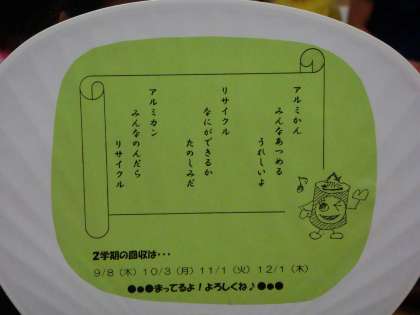 アルミかん
みんなあつめる
うれしいよ
リサイクル
なにができるか
たのしみだ
アルミカン
みんなのんだら
リサイクル
2学期の回収は・・・
9/8（木）10/3（月）11/1（火）12/1（木）
●●●まってるよ！よろしくね♪●●●